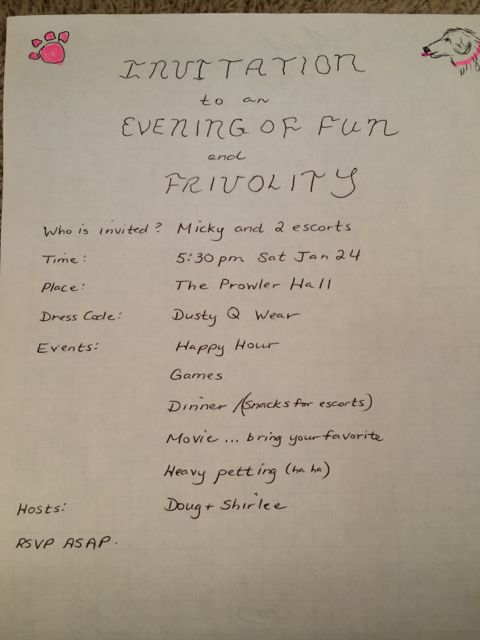 INVITATION
to an
EVENING OF FUN
and
FRIVOLITY
Who is invited? Micky and 2 escorts
Time: 5:30 pm Sat Jan 24
Place: The Prowler Hall
Dress Code: Dusty Q Wear
Events: Happy Hour
Games
Dinner /(snacks for escorts)
Movie ... bring your favorite
Heavy petting (ha ha)
Hosts: Doug + Shirlee
RSVP ASAP.